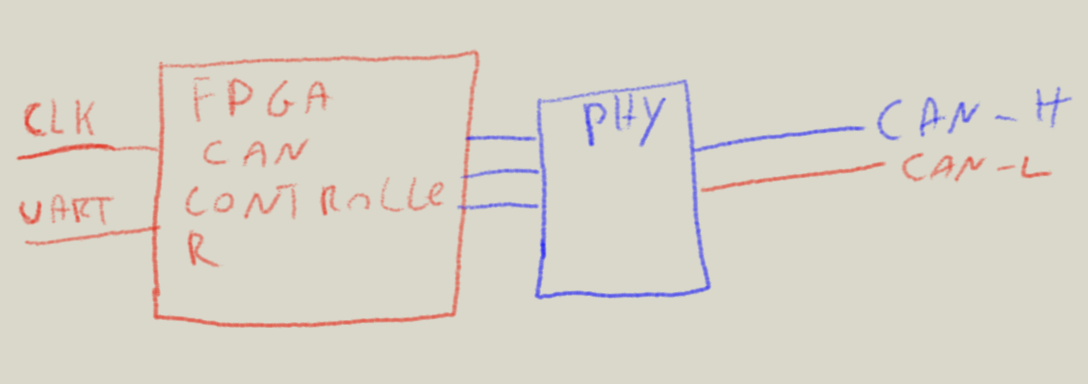 CLK
UART
FPGA
CAN
CONTROLLE
R
PHY
CAN_H
CAN-L